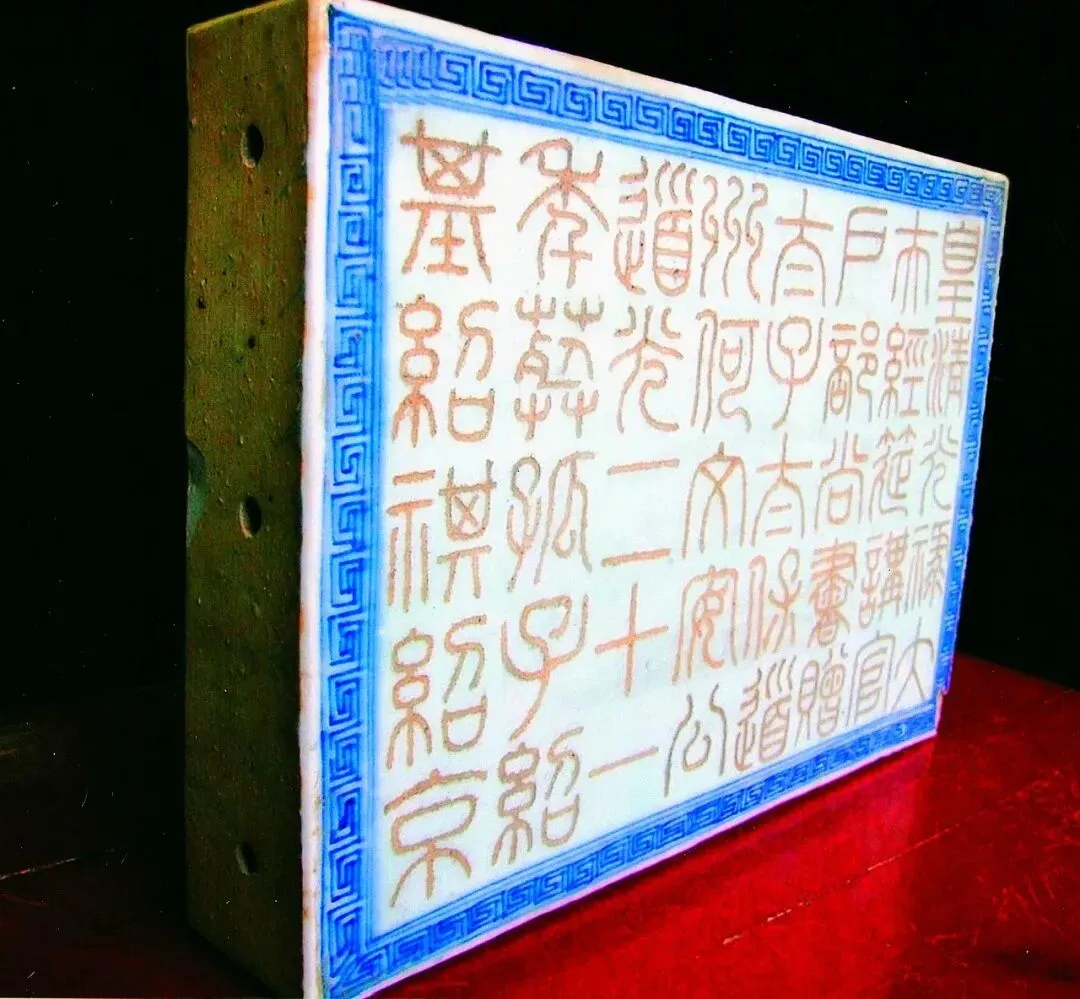 皇清光祿大
夫經筵講官
戶部尚書贈
太子太保道
州何文安公
道光二十一
年葬孤子紹
基紹祺紹京